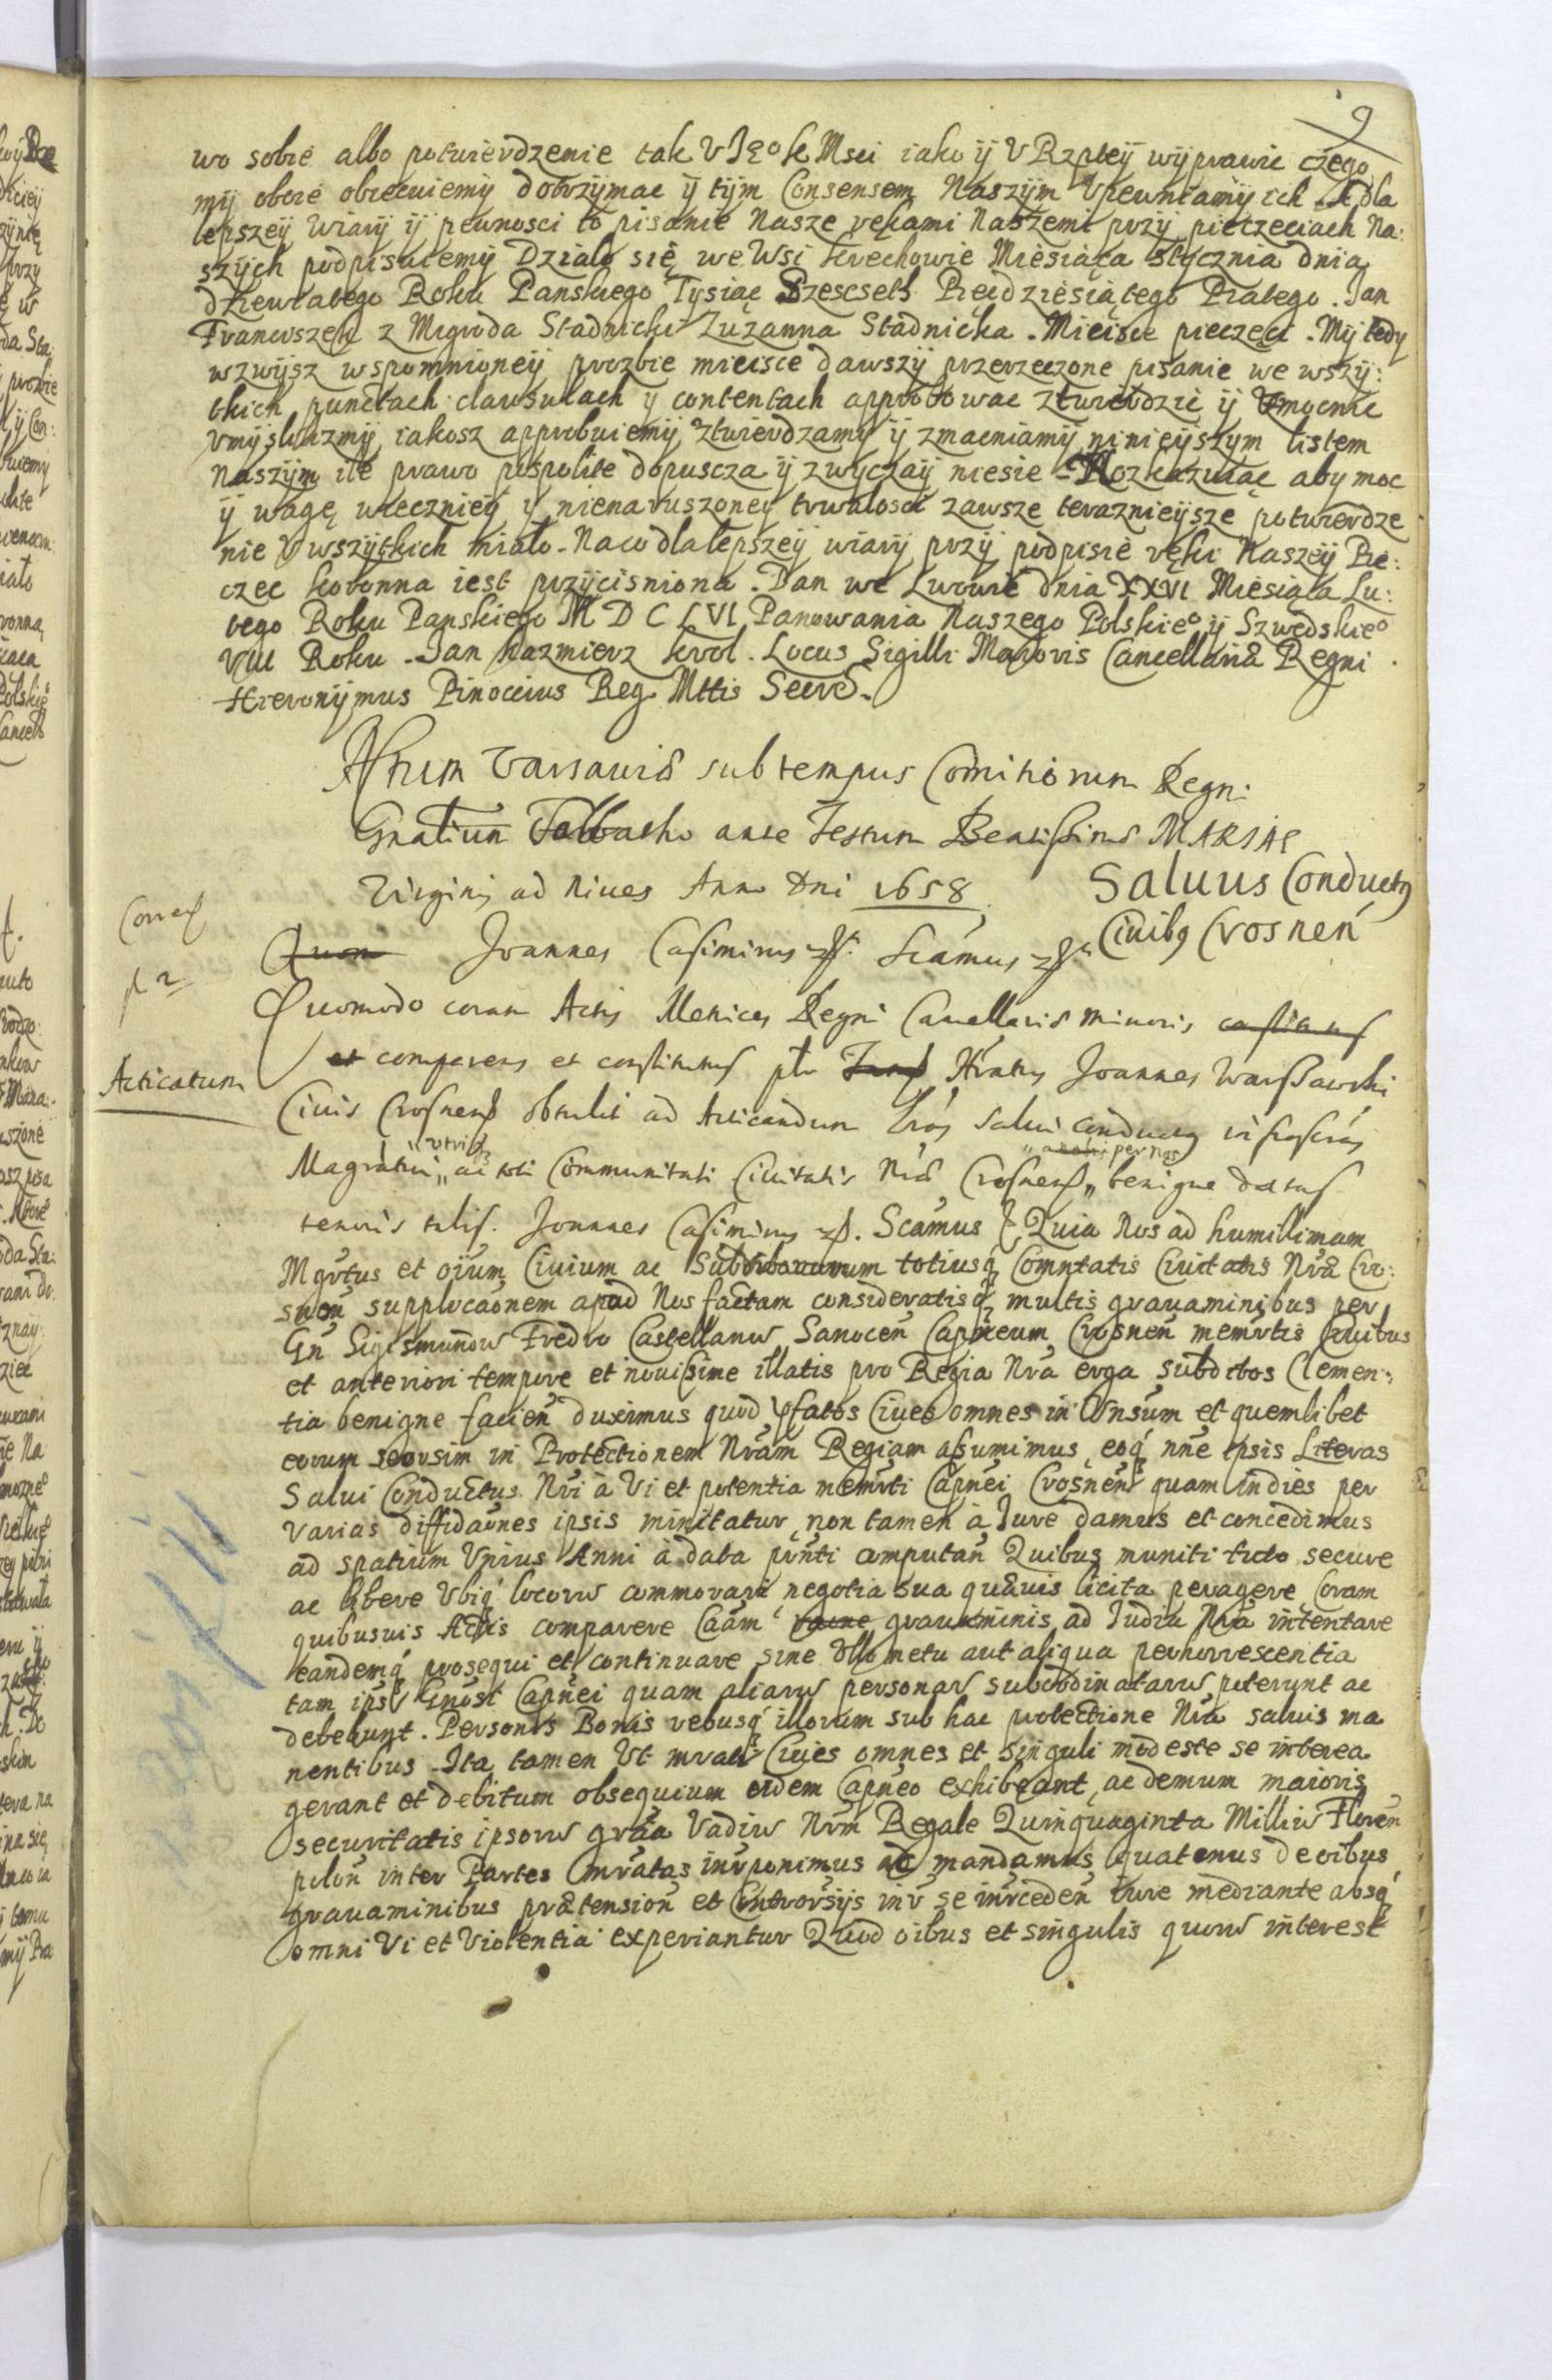 9
wo sobie albo potwierdzenie tak V Jeo K Msci iako ÿ V Rzpteÿ wÿprawic czego
mÿ oboie obiecuiemÿ dotrzÿmac ÿ tÿm Consensem Naszÿm Vpewniamÿ ich. A dla
lepszeÿ wiarÿ ÿ pewnosci to pisanie Nasze rękami Naszemi przÿ pieczęciach Na:
szÿch podpisuiemÿ Działo się we Wsi Krechowie Miesiąca Stÿcznia dnia
dziewiątego Roku Panskiego Tysiąc Szescsetˢ Pięcdziesiątego Piątego. Jan
Franciszek z Migroda Stadnicki Zuzanna Stadnicka. Mieisce pieczęci. Mÿ tedy
wzwÿsz wspomnioneÿ prozbie mieisce dawszÿ przerzeczone pisanie we wszÿ:
tkich punctach clausulach ÿ contentach approbowac ztwierdzic ÿ Vmocnic
Vmÿslilizmÿ iakosz approbuiemÿ ztwierdzamÿ ÿ zmacniamÿ ninieÿszym listem
Naszÿm ile prawo pospolite dopuscza ÿ zwyczaÿ niesie. Rozkazuiąc aby moc
ÿ wagę wieczneÿ ÿ nienaruszoneÿ trwałosci zawsze teraznieÿsze potwierdze
nie V wszÿtkich miało. Na co dla lepszeÿ wiarÿ przÿ podpisie ręki Naszeÿ Pie:
częc koronna iest przÿcisniona. Dan we Lwowie dnia XXVI Miesiąca Lu:
tego Roku Panskiego M D C L VI Panowania Naszego Polskieo ÿ Szwedskieo
VIII Roku. Jan Kazmierz Krol. Locus Sigilli Maioris Cancellariæ Regni.
Hieronÿmus Pinoccius Reg. Mttis Secret.
Actum Varsaviæ sub tempus Comitiorum Regni
Gnalium Sabbatho ante Festum Beatissimæ MARIAE
Virginis ad Nives Anno Dni 1658
Saluus Conductus
Ciuibus Crosnen
Corrept
Quon Joannes Casimirus Scamus
Quomodo coram Actis Metrices Regni Cancellariæ Minoris
Acticatum
et comparens et constitutus Joannes Warszawski
Ciuis Crosnens obtulit ad Acticandum Lras Salui Conductus infrascras
Magratui utriq ac toti Communitati Ciuitatis Nræ Crosnens per nos benigne datas
tenoris talis. Joannes Casimirus Scamus Quia Nos ad humillimam
Mgrtus et oium Ciuium ac Suburbanorum totiusq Comntatis Ciuitatis Nræ Cro:
snen supplicaonem apud Nos factam consideratisq multis grauaminibus per
Gn Sigismundu Fredro Castellanu Sanocen Capneum Crosnen memrtis Ciuibus
et anteriori tempore et nouissime illatis pro Regia Nra erga subditos Clemen:
tia benigne facien duximus quod pfatos Ciues omnes in Vnsum et quemlibet
eorum seorsim in Protectionem Nram Regiam assumimus eoq nne ipsis Literas
Salui Conductus Nri à Vi et potentia memrti Capnei Crosnen quam indies per
varias diffidaones ipsis minitatur non tamen à Jure damus et concedimus
ad spatium Vnius Anni à data pnti computan Quibus muniti tuto secure
ac libere Vbiq locoru commorari negotia sua quæuis licita peragere Coram
quibusuis Actis comparere Caam grauaminis ad Judia Nra intentare
eandemq prosequi et continuare sine Vllo metu aut aliqua perhorrescentia
tam ipsi Gnosi Capnei quam aliaru personaru subordinataru poterunt ac
debebunt. Personis Bonis rebusq illorum sub hac protectione Nra saluis ma
nentibus. Ita tamen Vt mrati Ciues omnes et singuli modeste se interea
gerant et debitum obsequium eidem Capneo exhibeant, ac demum maioris
securitatis ipsoru graa Vadiu Nrm Regale Quinquaginta Milliu Floren
polon inter Partes mratas inrponimus ac mandamus quatenus de oibus
grauaminibus prætension et Controrsijs inr se inrceden iure mediante absq
omni Vi et Violentia experiantur Quod oibus et singulis quoru interest